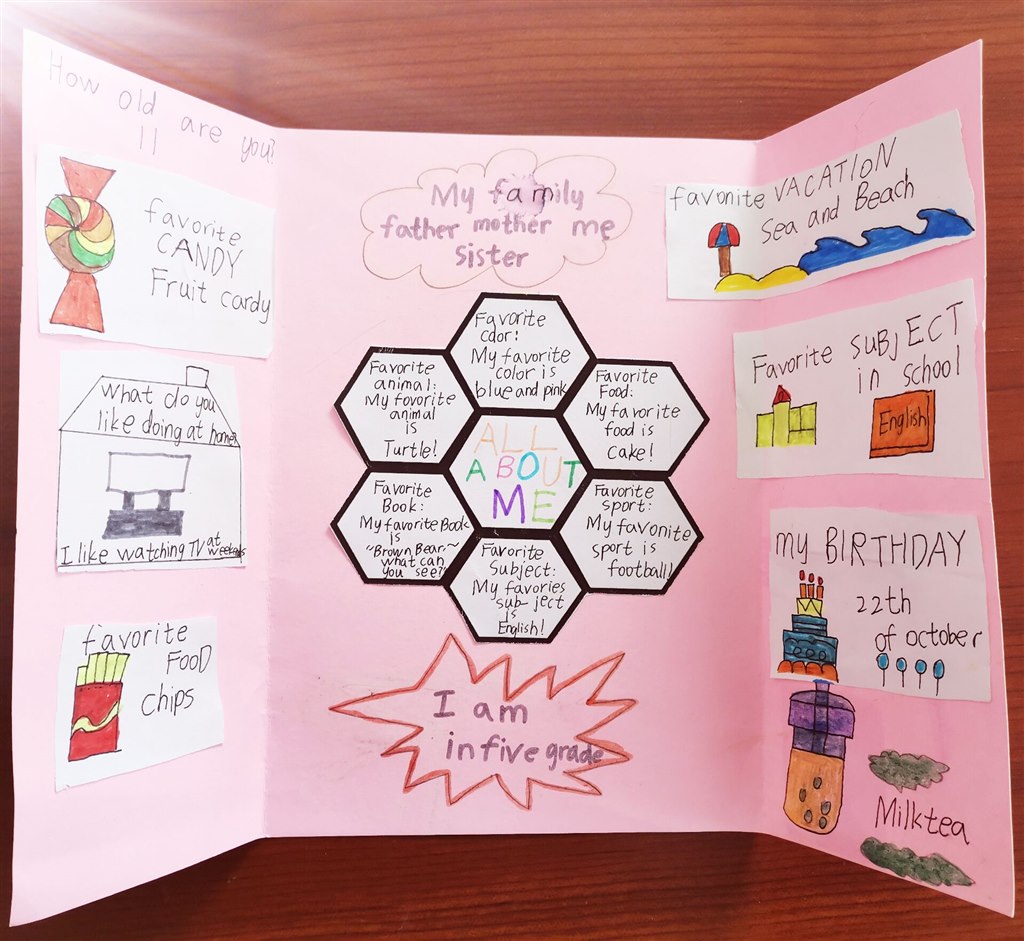 How old are you?
11
favorite
CANDY
Fruit cardy
What do you
like doing at home?
I like watching TV at
weekends
favorite
FOOD
chips
My family
father mother me
sister
Favorite
color:
My favorite
color is
blue and pink
Favorite
animal:
My fovorite
animal
is
Turtle!
Favorite
Food:
My favorite
food is
cake!
ALL
ABOUT
ME
Favorite
Book:
My favorite Book
is
"Brown Bear~
what can
you see?"
Favorite
sport:
My favonite
sport is
football!
Favorite
Subject:
My favories
sub-ject
is
English!
I am
in five grade
favonite VACATION
Sea and Beach
Favorite SUBJECT
in school
English
my BIRTHDAY
22th
of october
Milktea